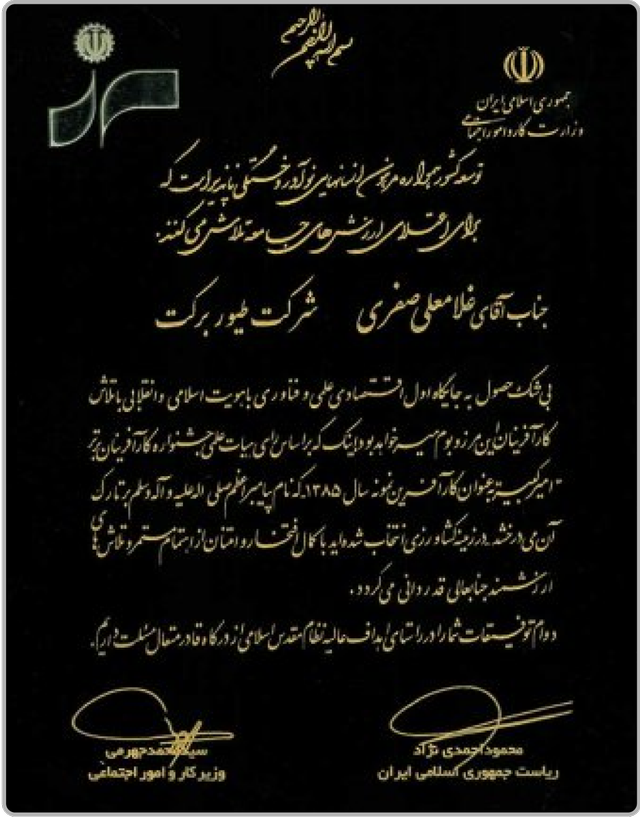 بسم الله الرحمن الرحیم
جمهوری اسلامی ایران
وزارت کار و امور اجتماعی
توسعه کشور همواره مرهون انسانهایی نوآور و خستگی ناپذیر است که
برای اعتلای ارزش های جامعه تلاش می کنند.
جناب آقای غلامعلی صفری شرکت طیور برکت
بی شک حصول به جایگاه اول اقتصادی علمی و فناوری با هویت اسلامی و انقلابی با تلاش
کارآفرینان این مرز و بوم میسر خواهد بود اینک که براساس رای هیات علمی جشنواره کارآفرینان برتر
"امیرکبیر" بعنوان کارآفرین نمونه سال ۱۳۸۵ که نام پیامبر اعظم صلی الله علیه و آله وسلم بر تارک
آن می درخشد در زمینه کشاورزی انتخاب شده اید با کمال افتخار و امتنان از اهتمام مستمر و تلاش های
ارزشمند جنابعالی قدردانی می گردد.
دوام توفیقات شما را در راستای اهداف عالیه نظام مقدس اسلامی از درگاه قادر متعال مسئلت داریم.
محمود احمدی نژاد
ریاست جمهوری اسلامی ایران
سید محمد جهرمی
وزیر کار و امور اجتماعی